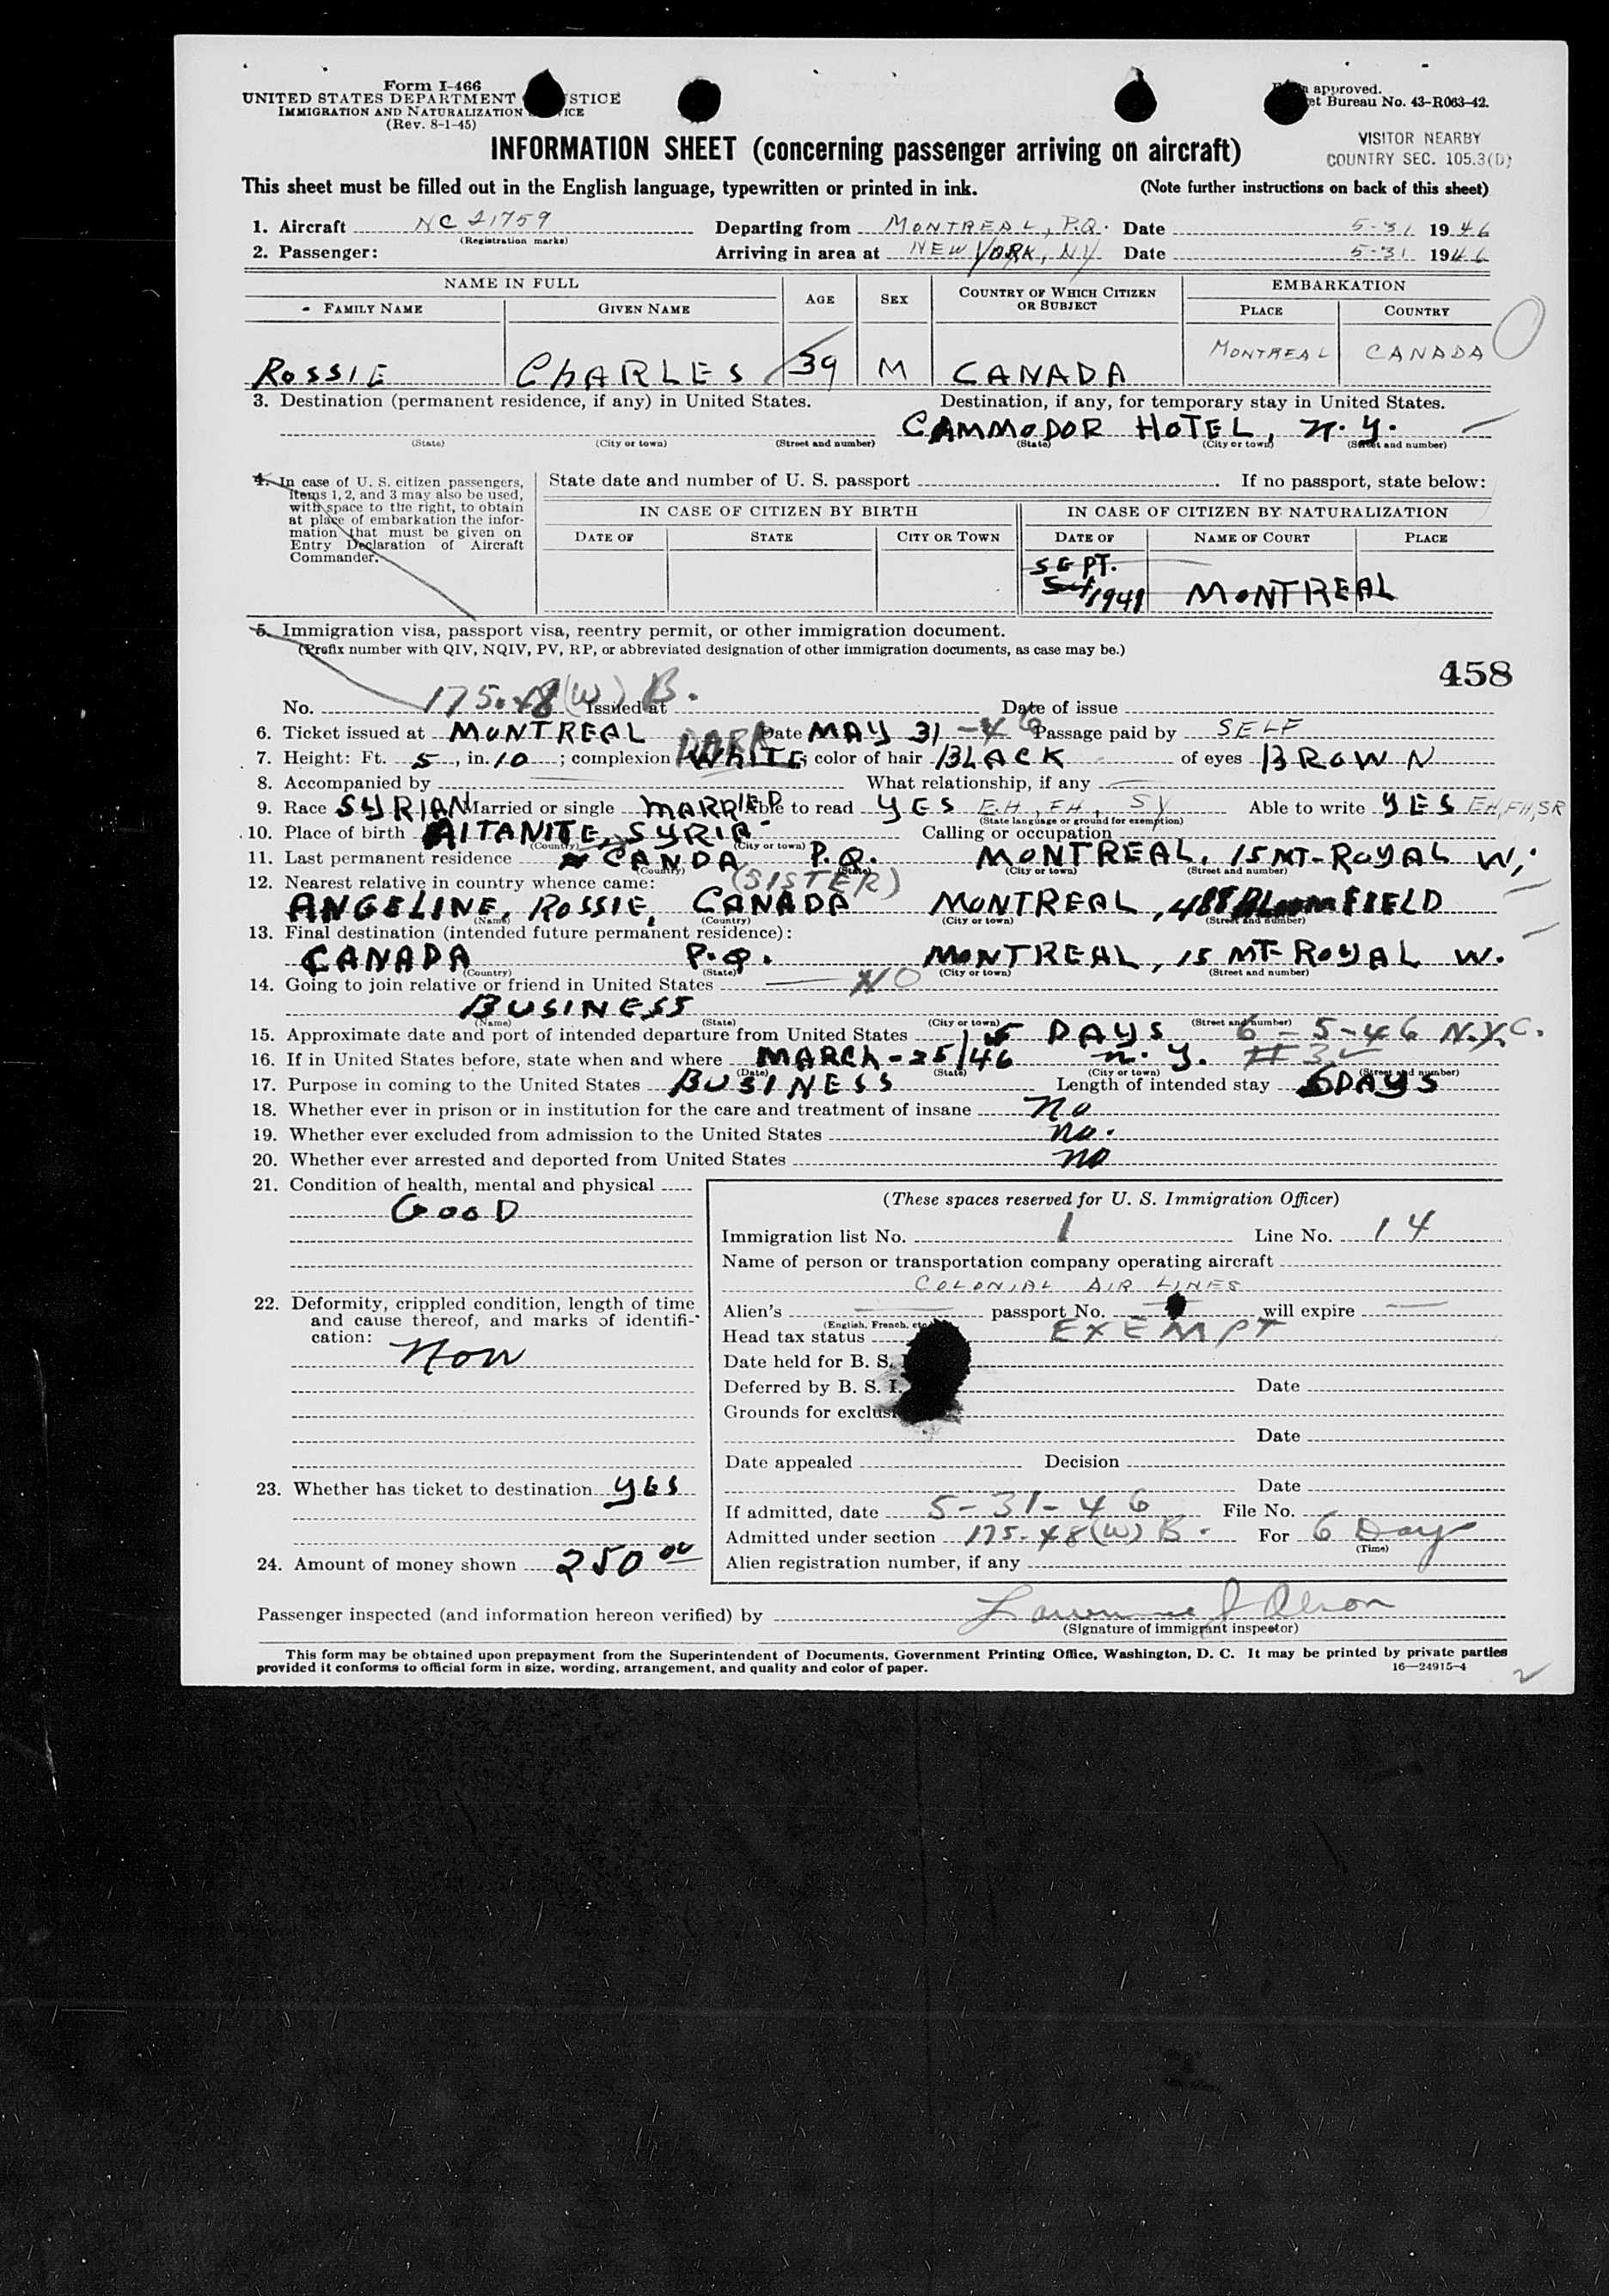 Form I-466
UNITED STATES DEPARTMENT STICE
IMMIGRATION AND NATURALIZATION ICE
(Rev. 8-1-45)
approved.
et Bureau No. 43-R063-42.
VISITOR NEARBY
COUNTRY SEC. 105.3(D)
INFORMATION SHEET (concerning passenger arriving on aircraft)
This sheet must be filled out in the English language, typewritten or printed in ink. (Note further instructions on back of this sheet)
1. Aircraft NC 21759 Departing from MONTREAL, P.Q. Date 5-31 1946
(Registration marks)
2. Passenger: Arriving in area at NEW YORK, NY Date 5-31 1946
NAME IN FULL AGE SEX COUNTRY OF WHICH CITIZEN OR SUBJECT EMBARKATION
FAMILY NAME GIVEN NAME PLACE COUNTRY
ROSSIE CHARLES 39 M CANADA MONTREAL CANADA
3. Destination (permanent residence, if any) in United States. Destination, if any, for temporary stay in United States.
CAMMODOR HOTEL, N.Y.
(State) (City or town) (Street and number) (State) (City or town) (Street and number)
4. In case of U. S. citizen passengers, items 1, 2, and 3 may also be used, with space to the right, to obtain at place of embarkation the information that must be given on Entry Declaration of Aircraft Commander.
State date and number of U. S. passport . If no passport, state below:
IN CASE OF CITIZEN BY BIRTH IN CASE OF CITIZEN BY NATURALIZATION
DATE OF STATE CITY OR TOWN DATE OF NAME OF COURT PLACE
SEPT.
1941 MONTREAL
5. Immigration visa, passport visa, reentry permit, or other immigration document.
(Prefix number with QIV, NQIV, PV, RP, or abbreviated designation of other immigration documents, as case may be.)
458
No. 175.48(W) B. Issued at Date of issue
6. Ticket issued at MONTREAL Date MAY 31-46 Passage paid by SELF
DARK
7. Height: Ft. 5, in. 10; complexion WHITE; color of hair BLACK of eyes BROWN
8. Accompanied by What relationship, if any
9. Race SYRIAN Married or single MARRIED Able to read YES EH, FH, SY Able to write YES EH, FH, SR
(State language or ground for exemption)
10. Place of birth AITANITE, SYRIA Calling or occupation
(Country) (City or town)
11. Last permanent residence CANDA P.Q. MONTREAL, 15 MT-ROYAL W.
(Country) (State) (City or town) (Street and number)
12. Nearest relative in country whence came: (SISTER)
ANGELINE, ROSSIE, CANADA MONTREAL, 488 BLOOMFIELD
(Name) (Country) (City or town) (Street and number)
13. Final destination (intended future permanent residence):
CANADA P.Q. MONTREAL, 15 MT-ROYAL W.
(Country) (State) (City or town) (Street and number)
14. Going to join relative or friend in United States NO
BUSINESS
(Name) (State) (City or town) (Street and number)
15. Approximate date and port of intended departure from United States DAYS 6-5-46 N.Y.C.
16. If in United States before, state when and where MARCH-25/46 N.Y.
(Date) (State) (City or town) (Street and number)
17. Purpose in coming to the United States BUSINESS Length of intended stay 6 DAYS
18. Whether ever in prison or in institution for the care and treatment of insane No
19. Whether ever excluded from admission to the United States no.
20. Whether ever arrested and deported from United States no
21. Condition of health, mental and physical
GOOD
22. Deformity, crippled condition, length of time and cause thereof, and marks of identification:
Non
23. Whether has ticket to destination YES
24. Amount of money shown 250 00
(These spaces reserved for U. S. Immigration Officer)
Immigration list No. 1 Line No. 14
Name of person or transportation company operating aircraft
COLONIAL AIR LINES
Alien's passport No. will expire
(English, French, etc.
Head tax status EXEMPT
Date held for B. S.
Deferred by B. S. I. Date
Grounds for exclus
Date
Date appealed Decision
Date
If admitted, date 5-31-46 File No.
Admitted under section 175.48(W) B. For 6 Day
(Time)
Alien registration number, if any
Passenger inspected (and information hereon verified) by
(Signature of immigrant inspector)
This form may be obtained upon prepayment from the Superintendent of Documents, Government Printing Office, Washington, D. C. It may be printed by private parties
provided it conforms to official form in size, wording, arrangement, and quality and color of paper. 16—24915-4